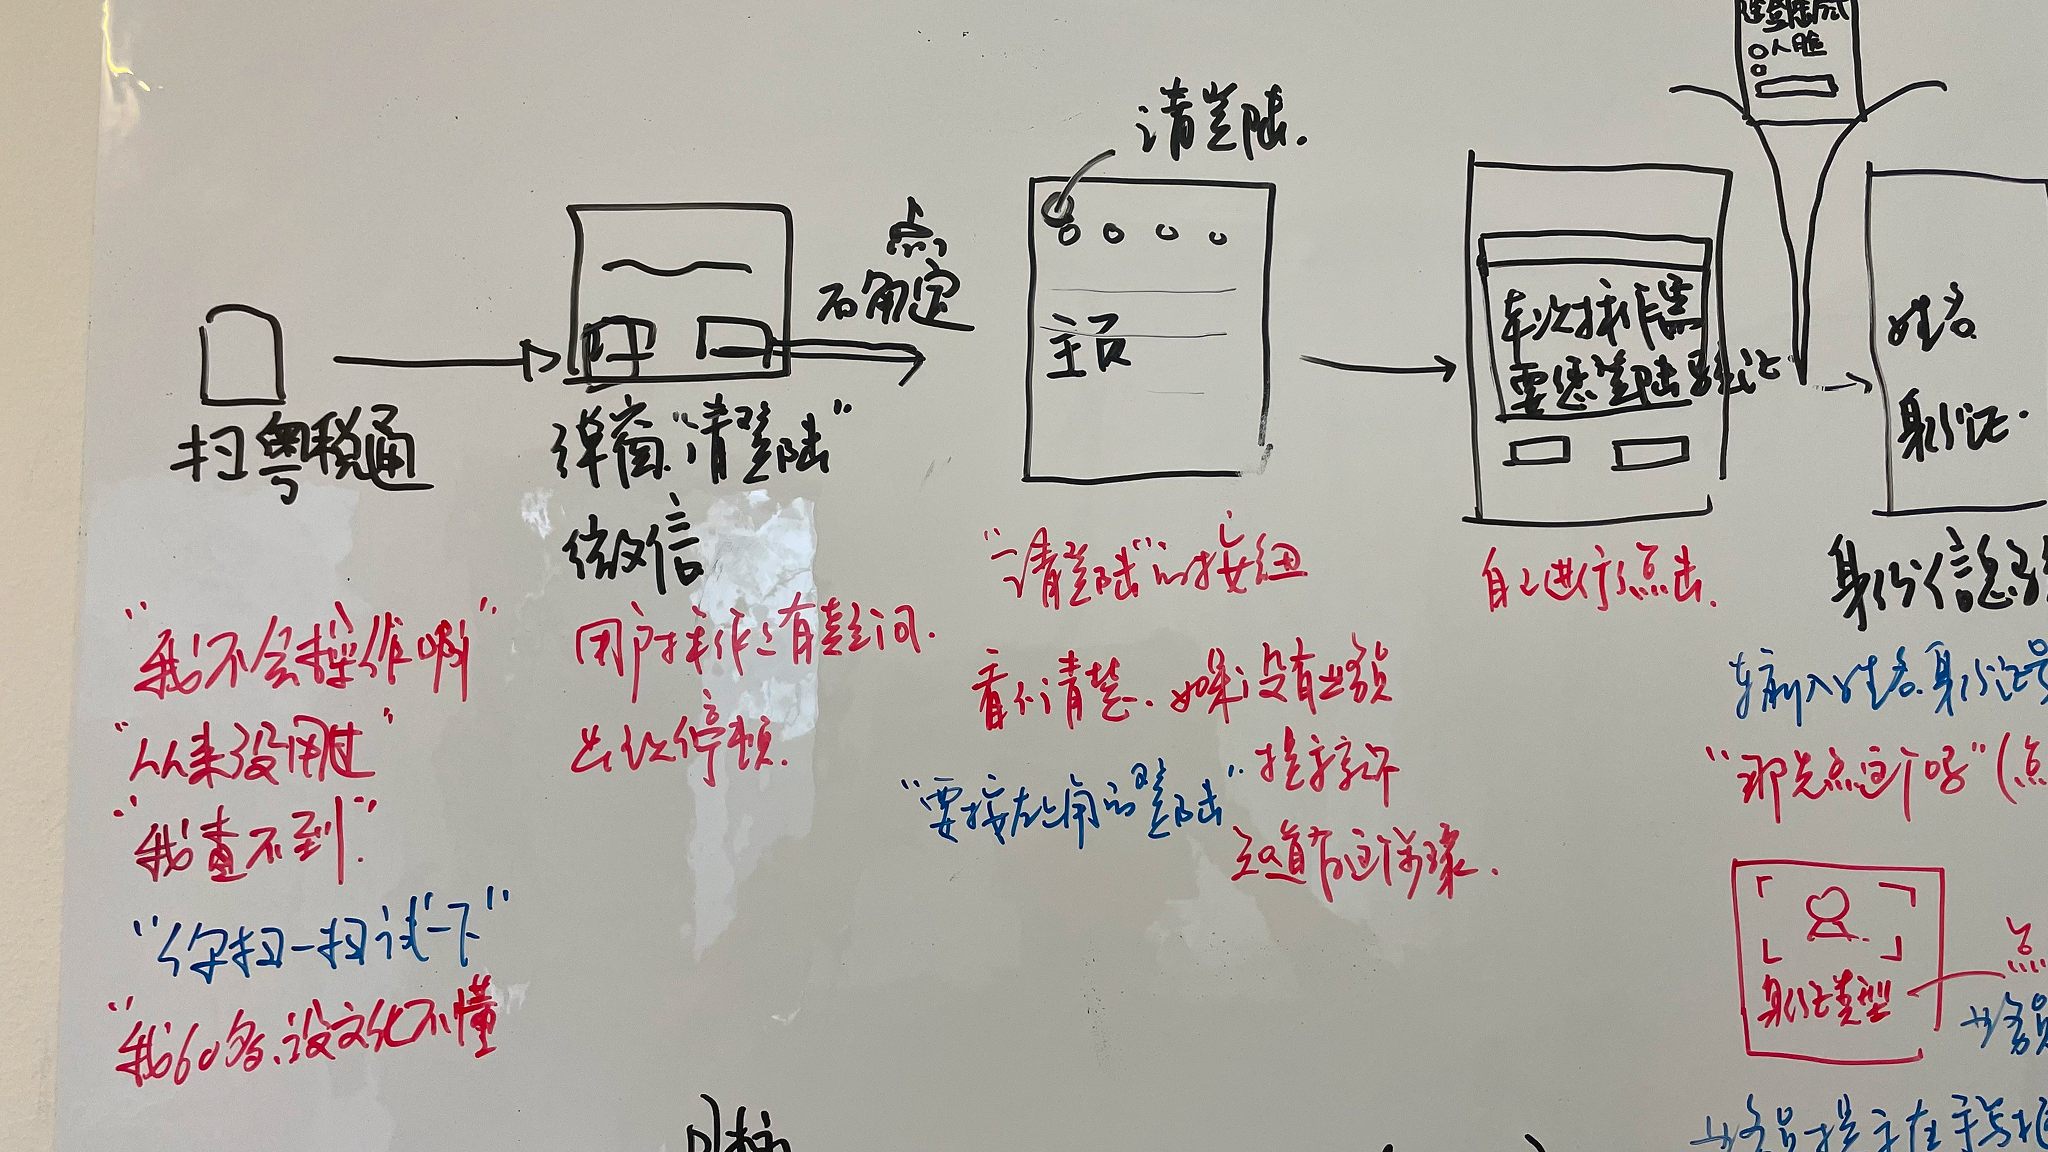 请登陆.
人脸
点
确定
主页
本次操作需
要您登陆验证
姓名
身份证.
扫粤税通
弹窗"请登陆"
微信
身份信息
"我不会操作啊"
"从来没用过"
"我查不到".
"你扫一扫试一下"
"我60多,没文化不懂
用户操作上有疑问.
出现停顿.
"请登陆"的按钮
看不清楚.如果没有业务员
提示
知道有这个步骤.
"要按左上角的登陆".
自己进行点击.
输入姓名.身份证号
"那先点这个吗"(点
身份证类型
点
业务员
业务员提示在手写框